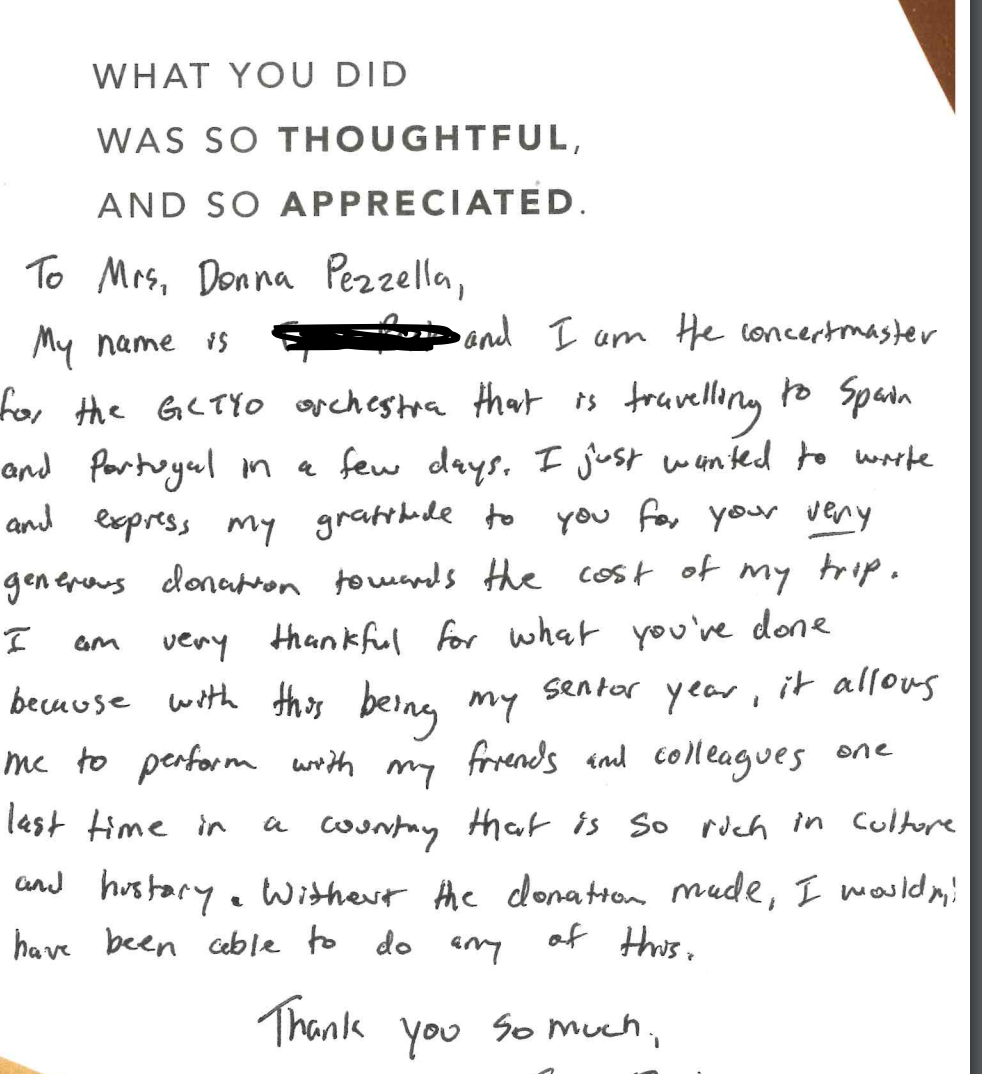 WHAT YOU DID
WAS SO THOUGHTFUL,
AND SO APPRECIATED.
To Mrs. Donna Pezzella,
My name is and I am the concertmaster
for the GCTYO orchestra that is travelling to Spain
and Portugal in a few days. I just wanted to write
and express my gratitude to you for your very
generous donation towards the cost of my trip.
I am very thankful for what you've done
because with this being my senior year, it allows
me to perform with my friends and colleagues one
last time in a country that is so rich in culture
and history. Without the donation made, I wouldn't
have been able to do any of this.
Thank you so much,